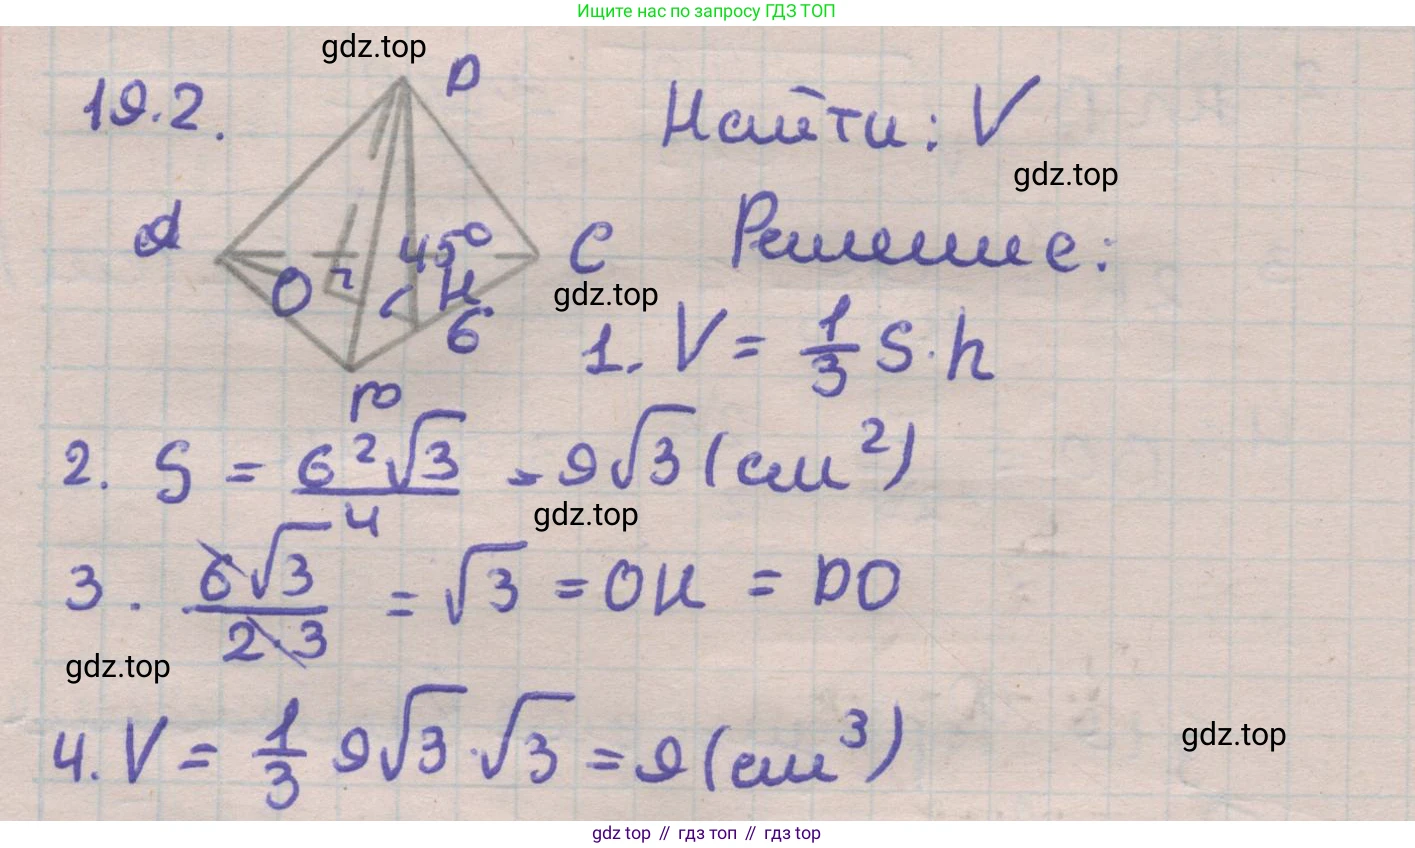 Ищите нас по запросу ГДЗ ТОП
gdz.top
19.2.
D
Найти: V
gdz.top
A
45°
C
Решение:
O
H
gdz.top
6
1. V = 1/3 S · h
B
2. S = 6²√3/4 = 9√3 (см²)
gdz.top
3. 6√3/2·3 = √3 = OH = DO
gdz.top
4. V = 1/3 9√3 · √3 = 9 (см³)
gdz.top
gdz top // гдз топ // gdz top